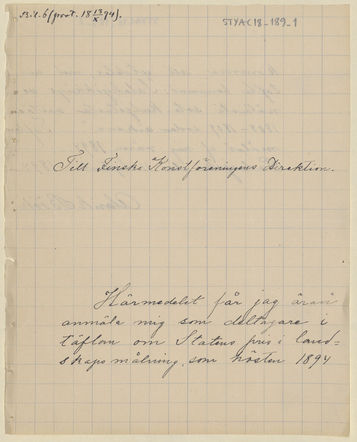 B.l. 6 (prot. 18 13/X 94).
STYA C18-189_1
Till Finska Konstföreningens Direktion.
Härmedelst får jag äran
anmäla mig som deltagare i
täflan om Statens pris i land-
skapsmålning som hösten 1894